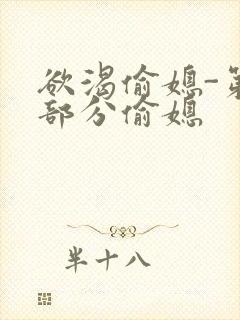 欲渴偷媳-第
部分偷媳
半十八